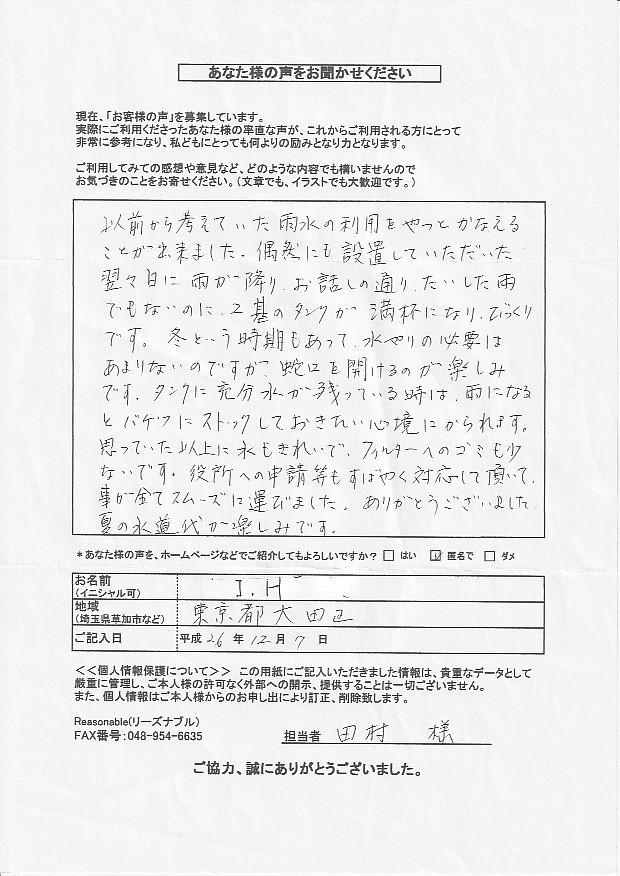 あなた様の声をお聞かせください
現在、「お客様の声」を募集しています。
実際にご利用くださったあなた様の率直な声が、これからご利用される方にとって
非常に参考になり、私どもにとっても何よりの励みとなり力となります。
ご利用してみての感想や意見など、どのような内容でも構いませんので
お気づきのことをお寄せください。（文章でも、イラストでも大歓迎です。）
以前から考えていた雨水の利用をやっとかなえる
ことが出来ました。偶然にも設置していただいた
翌々日に雨が降り、お話しの通り、たいした雨
でもないのに、2基のタンクが満杯になり、びっくり
です。冬という時期もあって、水やりの必要は
あまりないのですが、蛇口を開けるのが楽しみ
です。タンクに充分水が残っている時は、雨になる
とバケツにストックしておきたい心境にかられます。
思っていた以上に水もきれいで、フィルターへのゴミも少
ないです。役所への申請等もすばやく対応して頂いて、
事が全てスムーズに運びました。ありがとうございました。
夏の水道代が楽しみです。
*あなた様の声を、ホームページなどでご紹介してもよろしいですか？ □ はい ☑ 匿名で □ ダメ
お名前
（イニシャル可） I.H
地域
（埼玉県草加市など） 東京都大田区
ご記入日 平成 26 年 12 月 7 日
<<個人情報保護について>> この用紙にご記入いただきました情報は、貴重なデータとして
厳重に管理し、ご本人様の許可なく外部への開示、提供することは一切ございません。
また、個人情報はご本人様からのお申し出により訂正、削除致します。
Reasonable(リーズナブル)
FAX番号：048-954-6635 担当者 田村 様
ご協力、誠にありがとうございました。